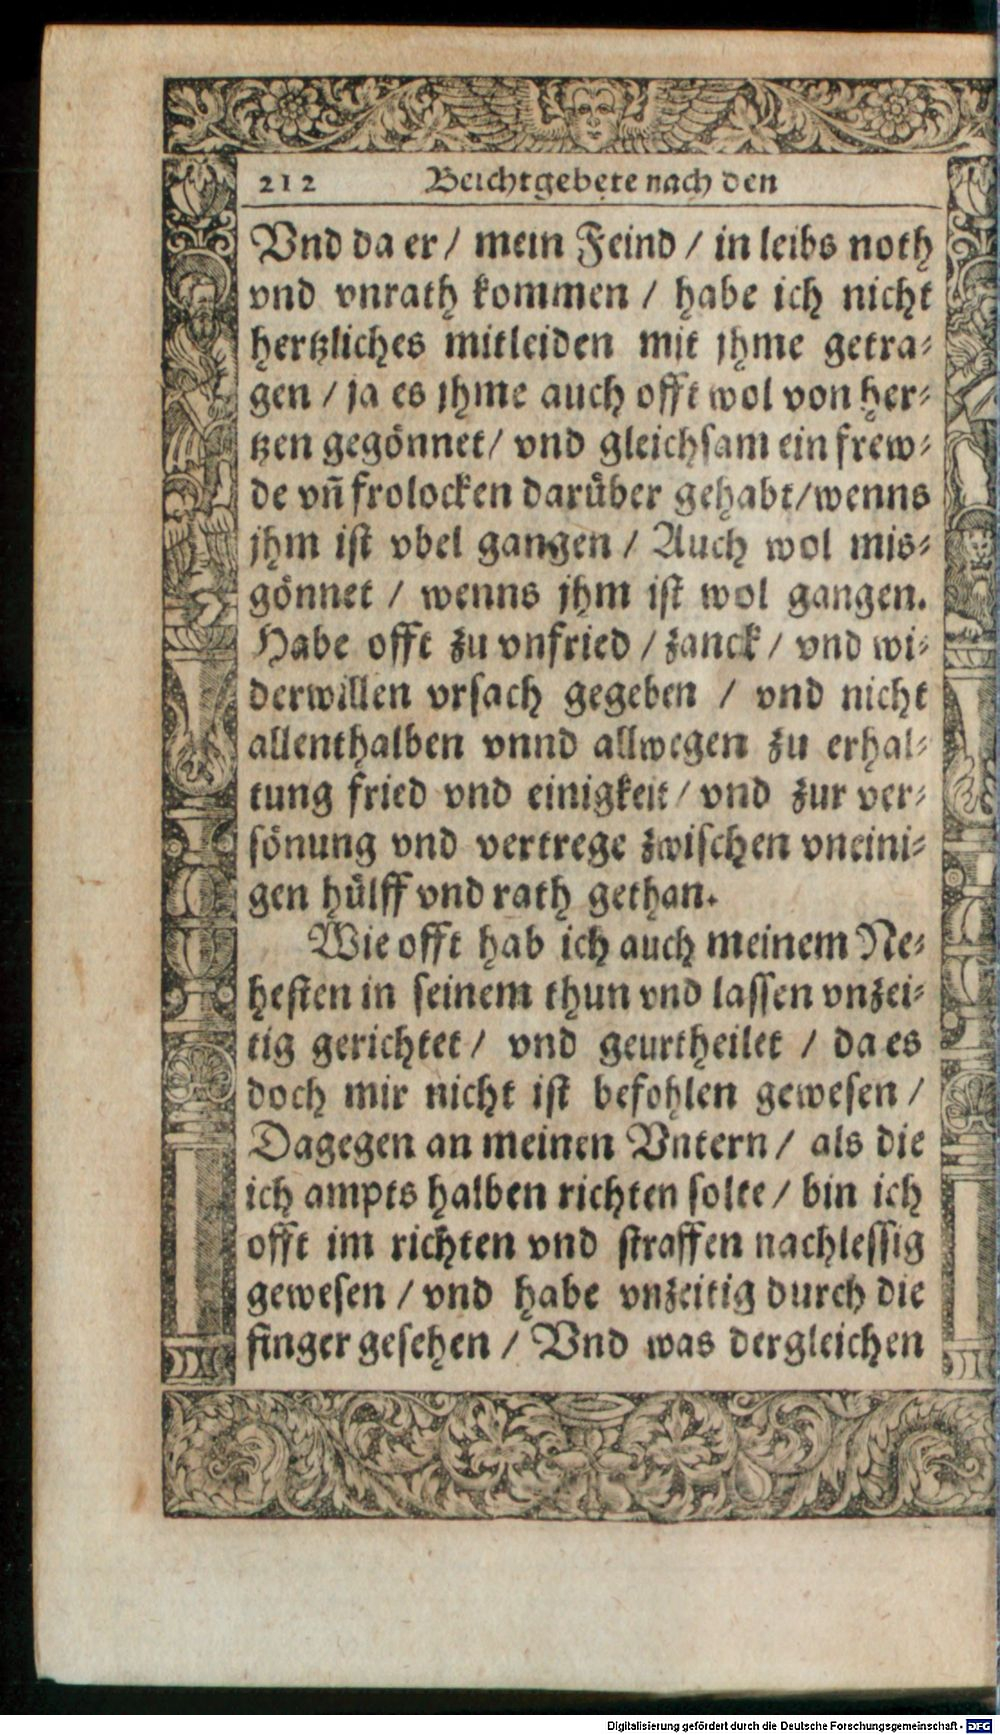 212 Beichtgebete nach den
Vnd da er / mein Feind / in leibs noth
vnd vnrath kommen / habe ich nicht
hertzliches mitleiden mit jhme getra-
gen / ja es jhme auch offt wol von her-
tzen gegönnet / vnd gleichsam ein frew-
de vñ frolocken darüber gehabt / wenns
jhm ist vbel gangen / Auch wol mis-
gönnet / wenns jhm ist wol gangen.
Habe offt zu vnfried / zanck / vnd wi-
derwillen vrsach gegeben / vnd nicht
allenthalben vnnd allwegen zu erhal-
tung fried vnd einigkeit / vnd zur ver-
sönung vnd vertrege zwischen vneini-
gen hülff vnd rath gethan.
Wie offt hab ich auch meinem Ne-
hesten in seinem thun vnd lassen vnzei-
tig gerichtet / vnd geurtheilet / da es
doch mir nicht ist befohlen gewesen /
Dagegen an meinen Vntern / als die
ich ampts halben richten solte / bin ich
offt im richten vnd straffen nachlessig
gewesen / vnd habe vnzeitig durch die
finger gesehen / Vnd was dergleichen
Digitalisierung gefördert durch die Deutsche Forschungsgemeinschaft - DFG